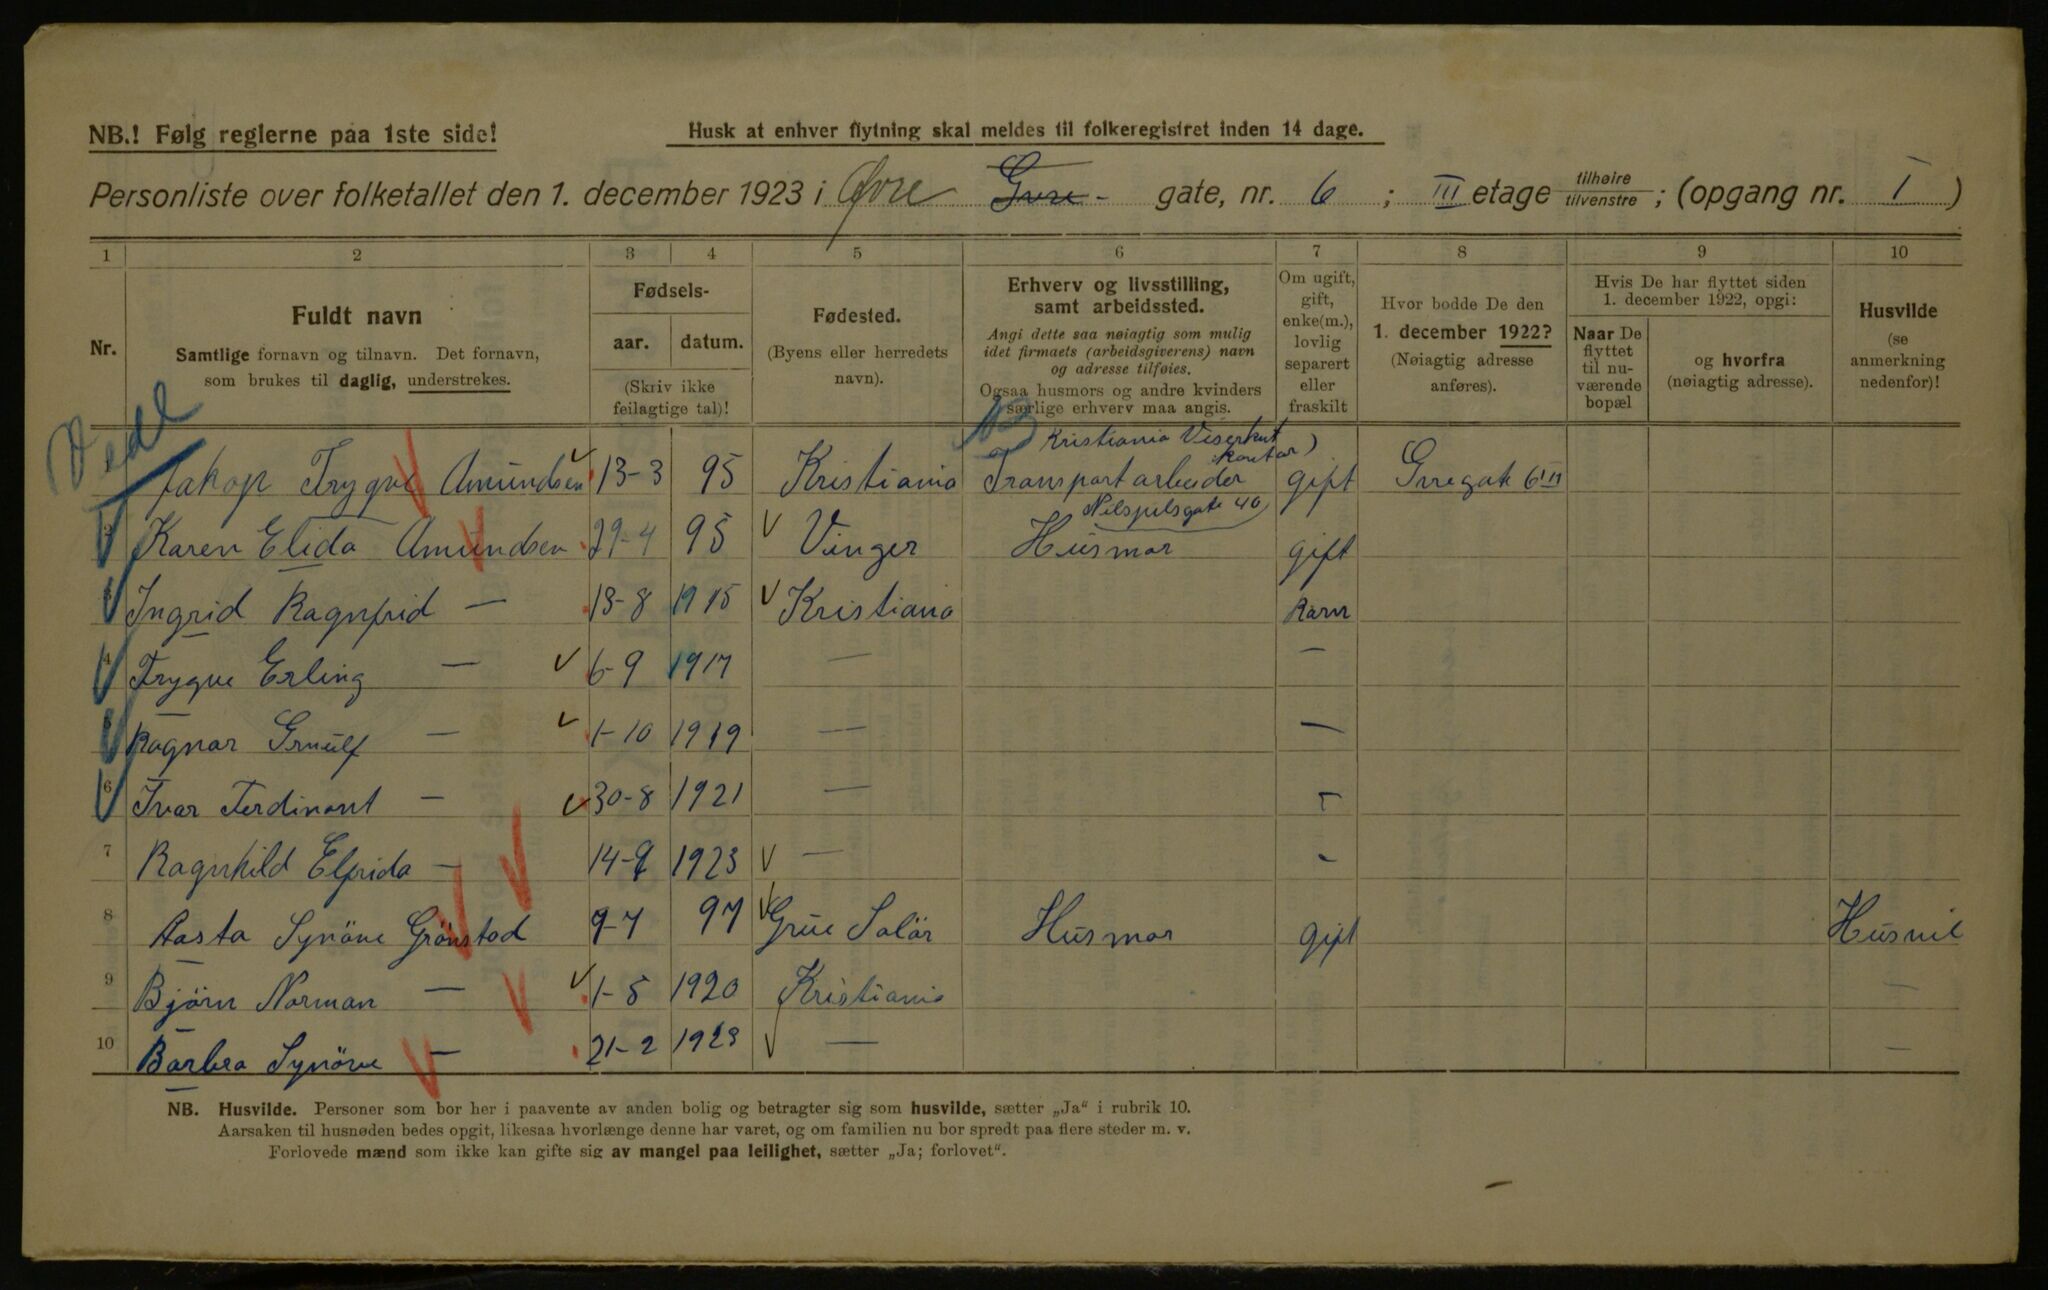 NB.! Følg reglerne paa 1ste side!
Husk at enhver flytning skal meldes til folkeregistret inden 14 dage.
Personliste over folketallet den 1. december 1923 i Øvre gate, nr. 6 ; III etage tilhøire tilvenstre ; (opgang nr. I )
1 2 3 4 5 6 7 8 9 10
Nr.
Fuldt navn
Samtlige fornavn og tilnavn. Det fornavn,
som brukes til daglig, understrekes.
Fødsels-
aar. datum.
(Skriv ikke
feilagtige tal)!
Fødested.
(Byens eller herredets
navn).
Erhverv og livsstilling,
samt arbeidssted.
Angi dette saa nøiagtig som mulig
idet firmaets (arbeidsgiverens) navn
og adresse tilføies.
Ogsaa husmors og andre kvinders
særlige erhverv maa angis.
Om ugift,
gift,
enke(m.),
lovlig
separert
eller
fraskilt
Hvor bodde De den
1. december 1922?
(Nøiagtig adresse
anføres).
Hvis De har flyttet siden
1. december 1922, opgi:
Naar De
flyttet
til nu-
værende
bopæl
og hvorfra
(nøiagtig adresse).
Husvilde
(se
anmerkning
nedenfor)!
Kristiania
Jakop Trygve Amundsen 13-3 95 Kristiania Transportarbeider gift
40
Karen Elida Amundsen 29-4 95 Vinger Husmor gift
Ingrid Ragnfrid — 13-8 1915 Kristiania Barn
4 Trygve Erling — 6-9 1917 — —
Ragnar — 1-10 1919 — —
6 Ivar Ferdinant — 30-8 1921 —
7 Ragnhild Elfrida — 14-9 1923 — -
8 Aasta Synöve Grönstad 9-7 97 Grue Solör Husmor gift Husvil
9 Björn Norman — 1-5 1920 Kristiania —
10 Barbra Synöve — 21-2 1923 — —
NB. Husvilde. Personer som bor her i paavente av anden bolig og betragter sig som husvilde, sætter „Ja" i rubrik 10.
Aarsaken til husnøden bedes opgit, likesaa hvorlænge denne har varet, og om familien nu bor spredt paa flere steder m. v.
Forlovede mænd som ikke kan gifte sig av mangel paa leilighet, sætter „Ja; forlovet".